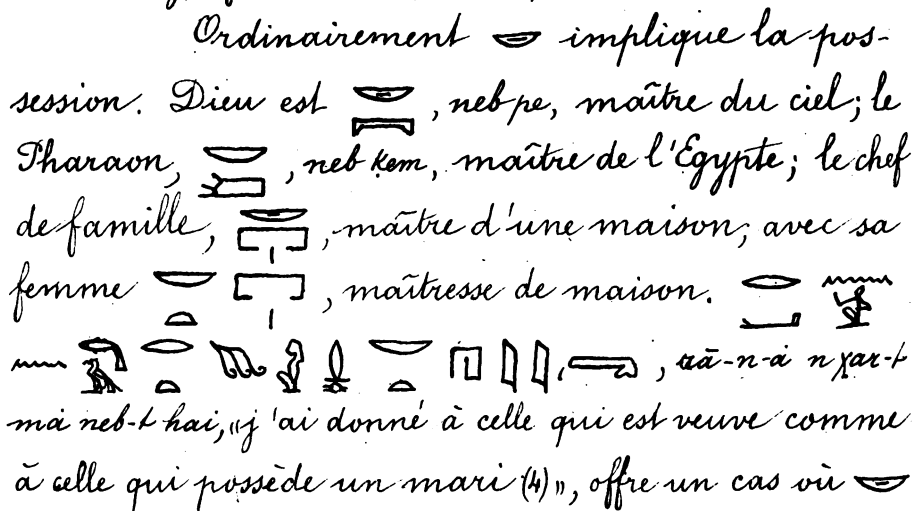 Ordinairement 𓎟 implique la pos-
session. Dieu est 𓎟𓇯, neb pe, maître du ciel; le
Pharaon, 𓎟𓆎, neb kem, maître de l'Égypte; le chef
de famille, 𓎟𓉐𓏤, maître d'une maison, avec sa
femme 𓎟𓏏𓉐𓏤, maîtresse de maison. 𓂋𓂝 𓈖𓀀
𓈖 𓂋𓏏 𓎟𓏏 𓉔𓇋𓇋, rā-n-ȧ n χar-t
mȧ neb-t hai, "j'ai donné à celle qui est veuve comme
à celle qui possède un mari (4)", offre un cas où 𓎟